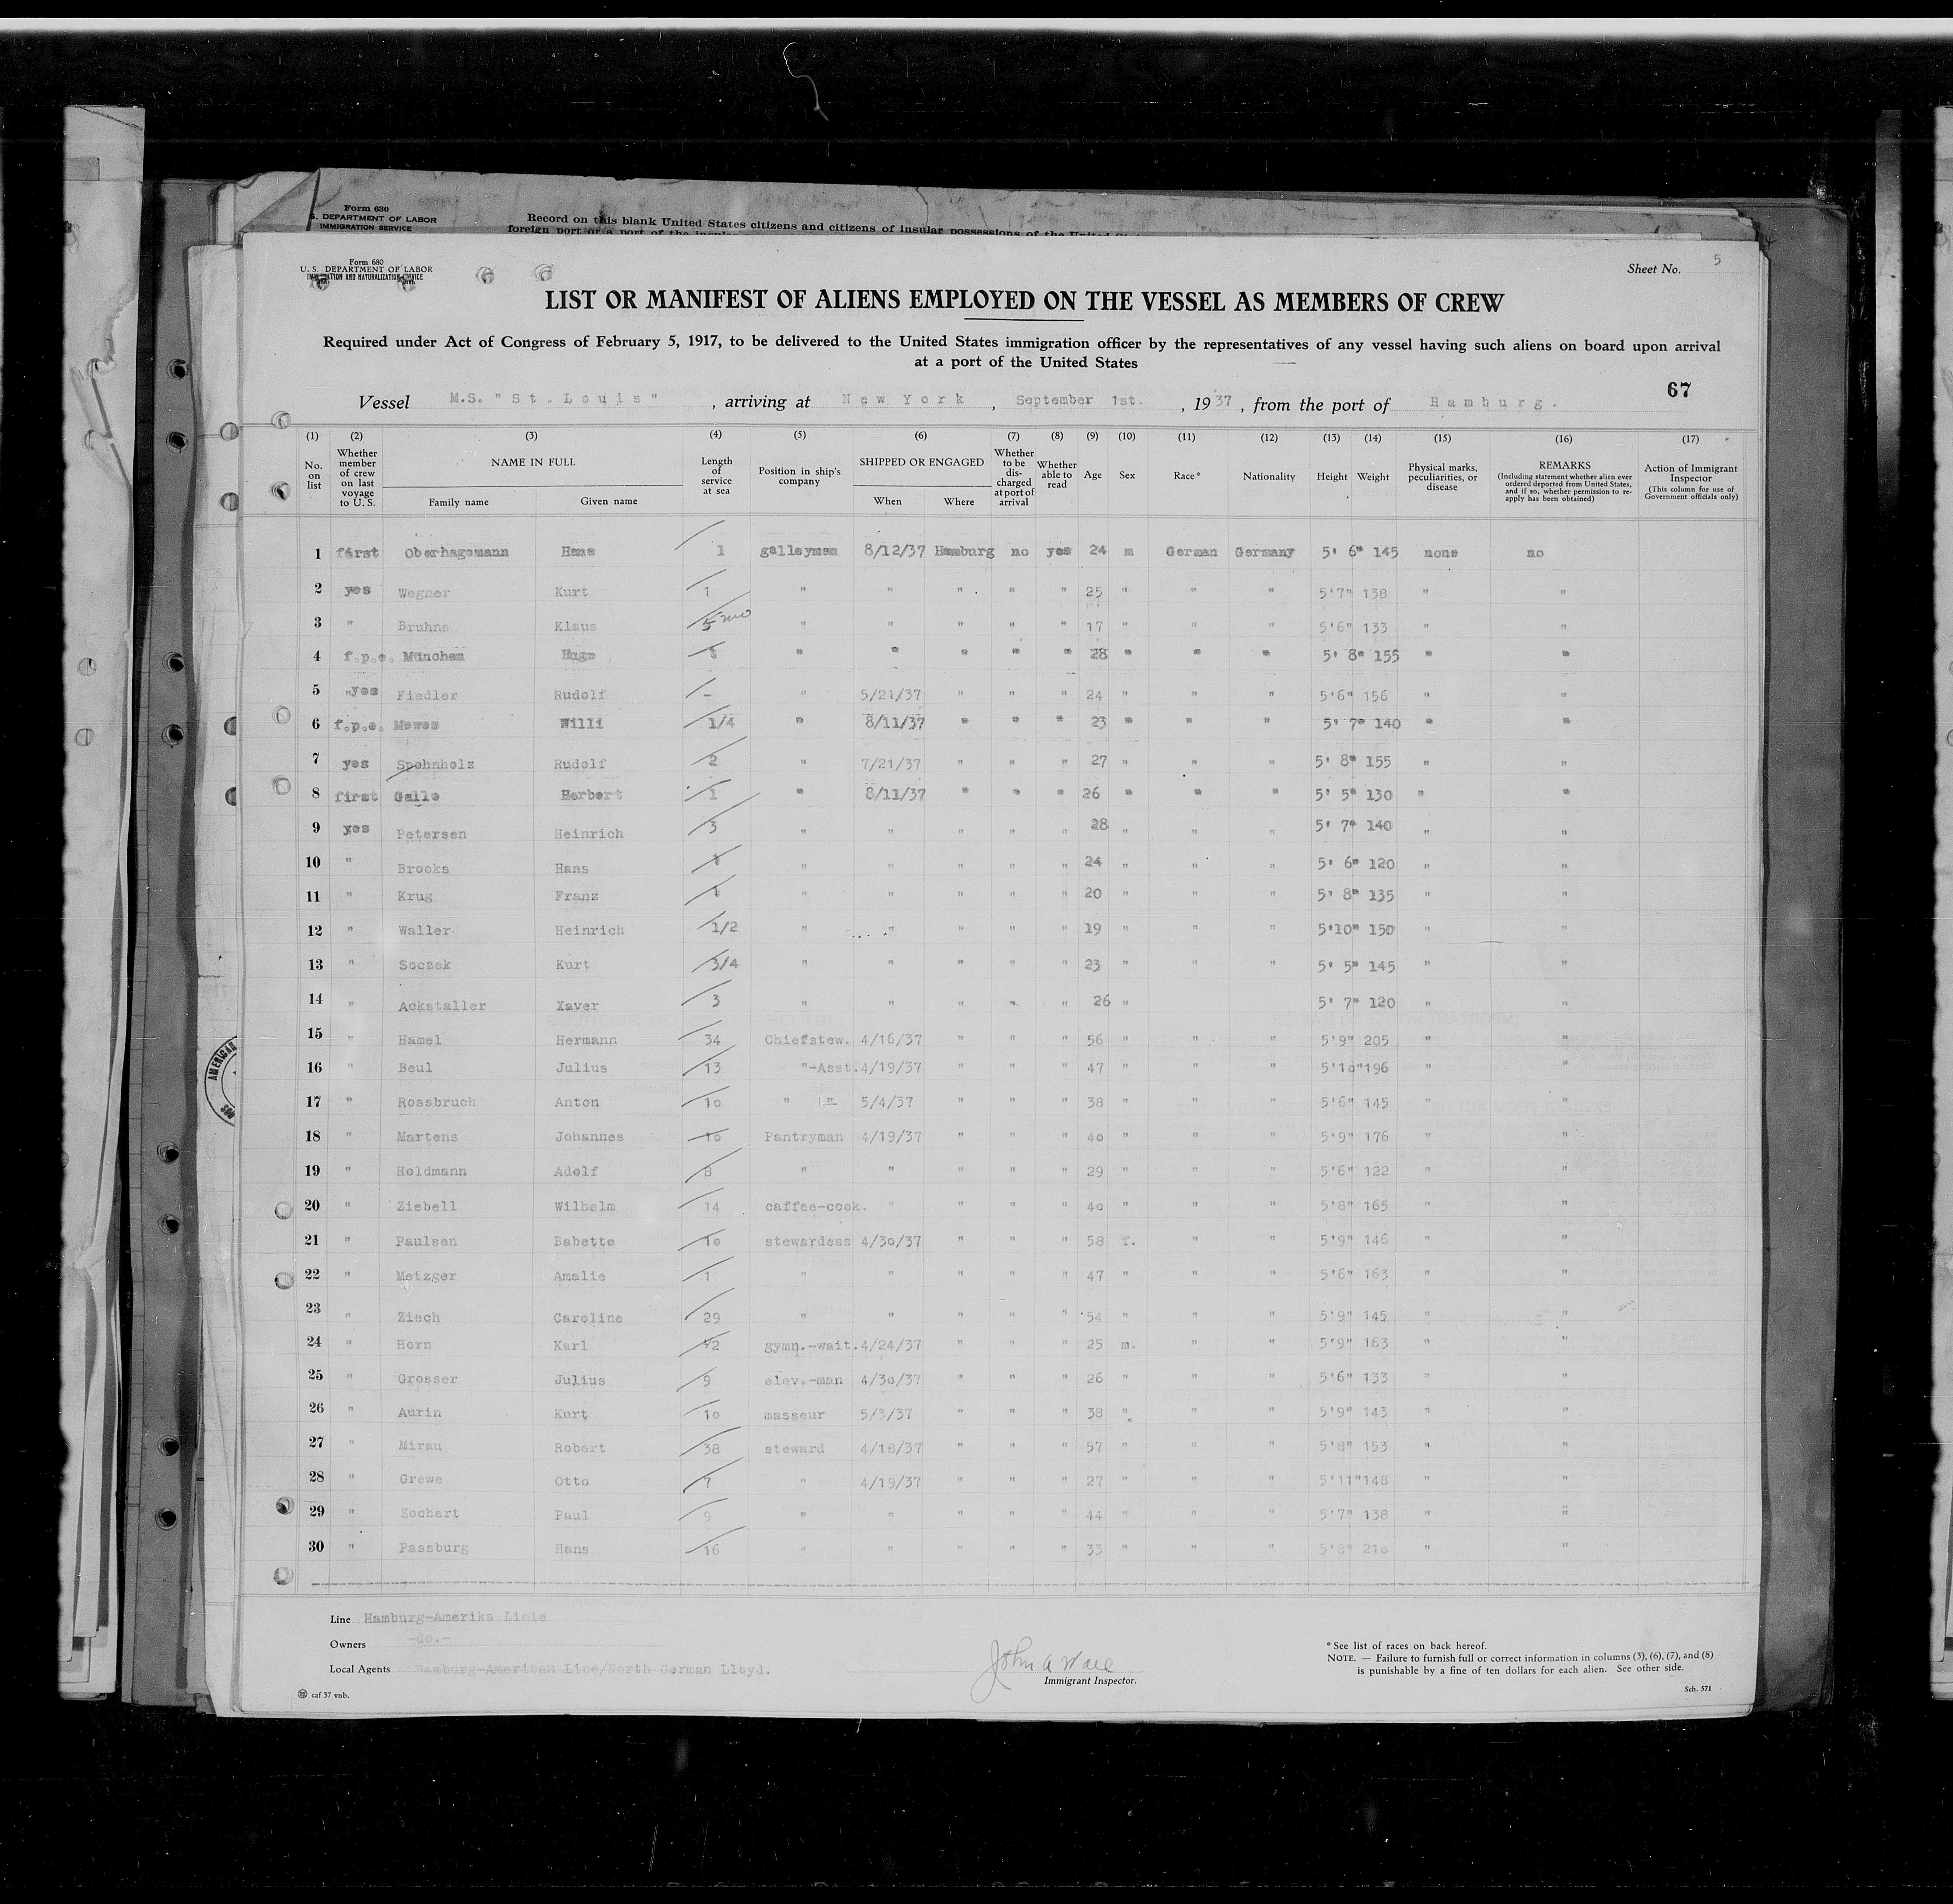 Form 630
S. DEPARTMENT OF LABOR
IMMIGRATION SERVICE
Record on this blank United States citizens and citizens of insular possessions of the United
foreign port or a port of the
Form 680
U. S. DEPARTMENT OF LABOR
IMMIGRATION AND NATURALIZATION SERVICE
Sheet No. 5
LIST OR MANIFEST OF ALIENS EMPLOYED ON THE VESSEL AS MEMBERS OF CREW
Required under Act of Congress of February 5, 1917, to be delivered to the United States immigration officer by the representatives of any vessel having such aliens on board upon arrival
at a port of the United States
67
Vessel M.S. "St.Louis", arriving at New York, September 1st., 1937, from the port of Hamburg.
(1) (2) (3) (4) (5) (6) (7) (8) (9) (10) (11) (12) (13) (14) (15) (16) (17)
No. on list
Whether member of crew on last voyage to U. S.
NAME IN FULL
Family name
Given name
Length of service at sea
Position in ship's company
SHIPPED OR ENGAGED
When
Where
Whether to be discharged at port of arrival
Whether able to read
Age
Sex
Race*
Nationality
Height
Weight
Physical marks, peculiarities, or disease
REMARKS
(Including statement whether alien ever ordered deported from United States, and if so, whether permission to re-apply has been obtained)
Action of Immigrant Inspector
(This column for use of Government officials only)
1 first Oberhagemann Hans 1 galleyman 8/12/37 Hamburg no yes 24 m German Germany 5' 6" 145 none no
2 yes Wegner Kurt 1 " " " " " 25 " " " 5'7" 138 " "
3 " Bruhns Klaus 5 mo " " " " " 17 " " " 5'6" 133 " "
4 f.p.e. München Hugo 1 " " " " " 28 " " " 5' 8" 155 " "
5 "yes Fiedler Rudolf - " 5/21/37 " " " 24 " " " 5'6" 156 " "
6 f.p.e. Mewes Willi 1/4 " 8/11/37 " " " 23 " " " 5' 7" 140 " "
7 yes Spohnholz Rudolf 2 " 7/21/37 " " " 27 " " " 5' 8" 155 " "
8 first Galle Herbert 1 " 8/11/37 " " " 26 " " " 5' 5" 130 " "
9 yes Petersen Heinrich 3 " " " " " 28 " " " 5' 7" 140 " "
10 " Brooks Hans 1 " " " " " 24 " " " 5' 6" 120 " "
11 " Krug Franz 1 " " " " " 20 " " " 5' 8" 135 " "
12 " Waller Heinrich 1/2 " " " " " 19 " " " 5'10" 150 " "
13 " Soczek Kurt 3/4 " " " " " 23 " " " 5' 5" 145 " "
14 " Ackstaller Xaver 3 " " " " " 26 " 5' 7" 120 " "
15 " Hamel Hermann 34 Chiefstew. 4/16/37 " " " 56 " " " 5'9" 205 " "
16 " Beul Julius 13 "-Asst. 4/19/37 " " " 47 " " " 5'10" 196 " "
17 " Rossbruch Anton 10 " " 5/4/37 " " " 38 " " " 5'6" 145 " "
18 " Martens Johannes 10 Pantryman 4/19/37 " " " 40 " " " 5'9" 176 " "
19 " Holdmann Adolf 8 " " " " " 29 " " " 5'6" 122 " "
20 " Ziebell Wilhelm 14 caffee-cook. " " " " 40 " " " 5'8" 165 " "
21 " Paulsen Babette 10 stewardess 4/30/37 " " " 58 f. " " 5'9" 146 " "
22 " Metzger Amalie 1 " " " " " 47 " " " 5'6" 163 " "
23 " Ziech Caroline 29 " " " " " 54 " " " 5'9" 145 " "
24 " Horn Karl 1/2 gymn.-wait. 4/24/37 " " " 25 m. " " 5'9" 163 " "
25 " Grosser Julius 9 elev.-man 4/30/37 " " " 26 " " " 5'6" 133 " "
26 " Aurin Kurt 10 masseur 5/3/37 " " " 38 " " " 5'9" 143 " "
27 " Mirau Robert 38 steward 4/18/37 " " " 57 " " " 5'8" 153 " "
28 " Grewe Otto 7 " 4/19/37 " " " 27 " " " 5'11" 148 " "
29 " Zochert Paul 9 " " " " " 44 " " " 5'7" 138 " "
30 " Passburg Hans 16 " " " " " 33 " " " 5'8" 210 " "
Line Hamburg-Amerika Linie
Owners -do.-
Local Agents Hamburg-American Line/North German Lloyd.
John A
Immigrant Inspector.
* See list of races on back hereof.
NOTE. — Failure to furnish full or correct information in columns (3), (6), (7), and (8)
is punishable by a fine of ten dollars for each alien. See other side.
caf 37 vnb.
Sch. 571
AMERICAN